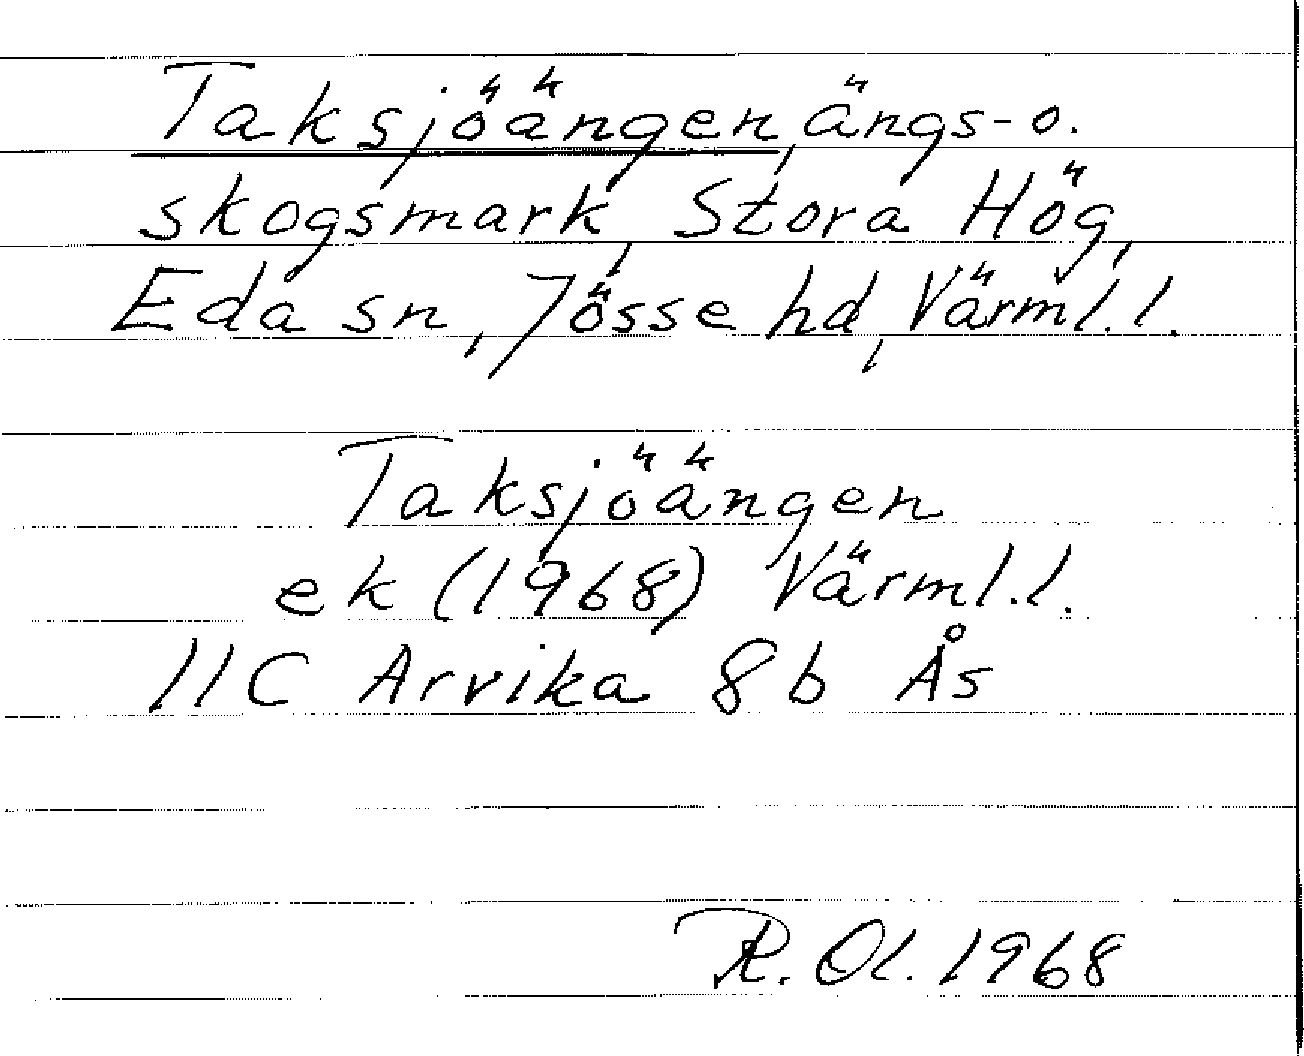 Taksjöängen, ängs- o.
skogsmark, Stora Hög,
Eda sn, Jösse hd, Värml. l.
Taksjöängen
ek (1968) Värml. l.
11C Arvika 8b Ås
R. Ol. 1968